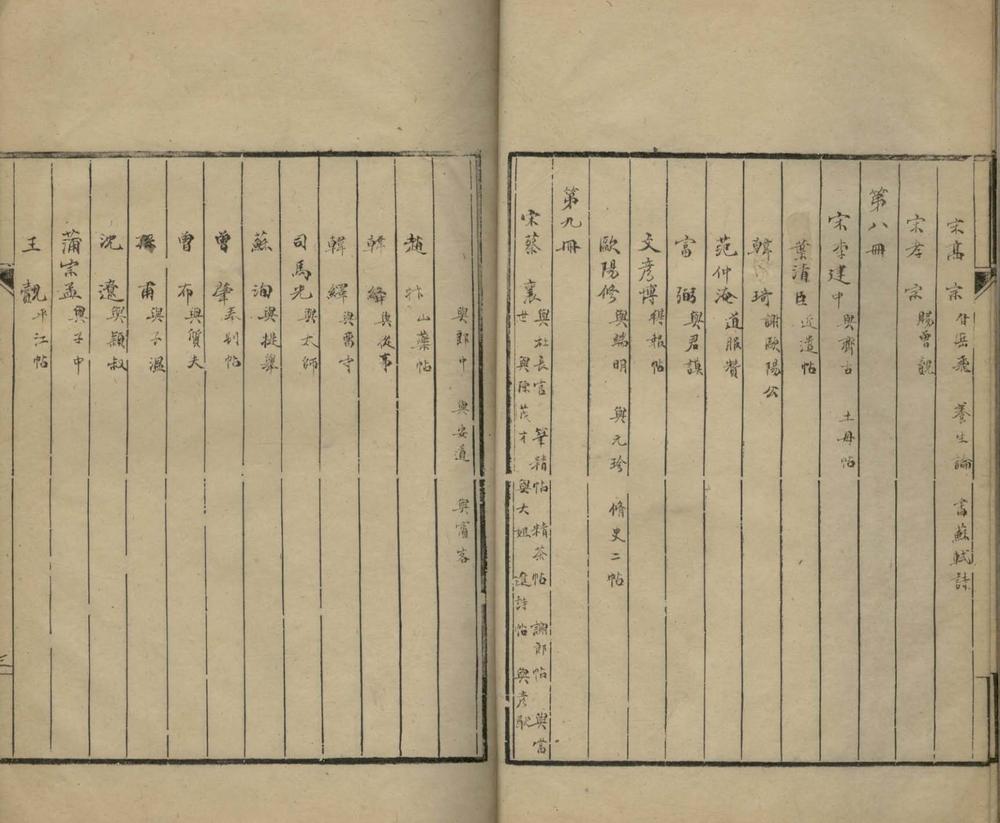 宋高宗 付岳飛 養生論 書蘇軾詩
宋孝宗 賜曾覿
第八冊
宋李建中 與齊古 土母帖
葉清臣 近遣帖
韓琦 謝歐陽公
范仲淹 道服贊
富弼 與君謨
文彥博 得報帖
歐陽修 與端明 與元珍 脩史二帖
第九冊
宋蔡襄 與杜長官 筆精帖 精茶帖 謝郎帖 與當
世 與除茂才 與大姐 遠詩帖 與彥猷
與郎中 與安道 與賓客
趙抃 山藥帖
韓絳 與從事
韓繹 與留守
司馬光 與太師
蘇洵 與提舉
曾肇 奉別帖
曾布 與質夫
孫甫 與子溫
沈遼 與穎叔
蒲宗孟 與子中
王覿 平江帖
三